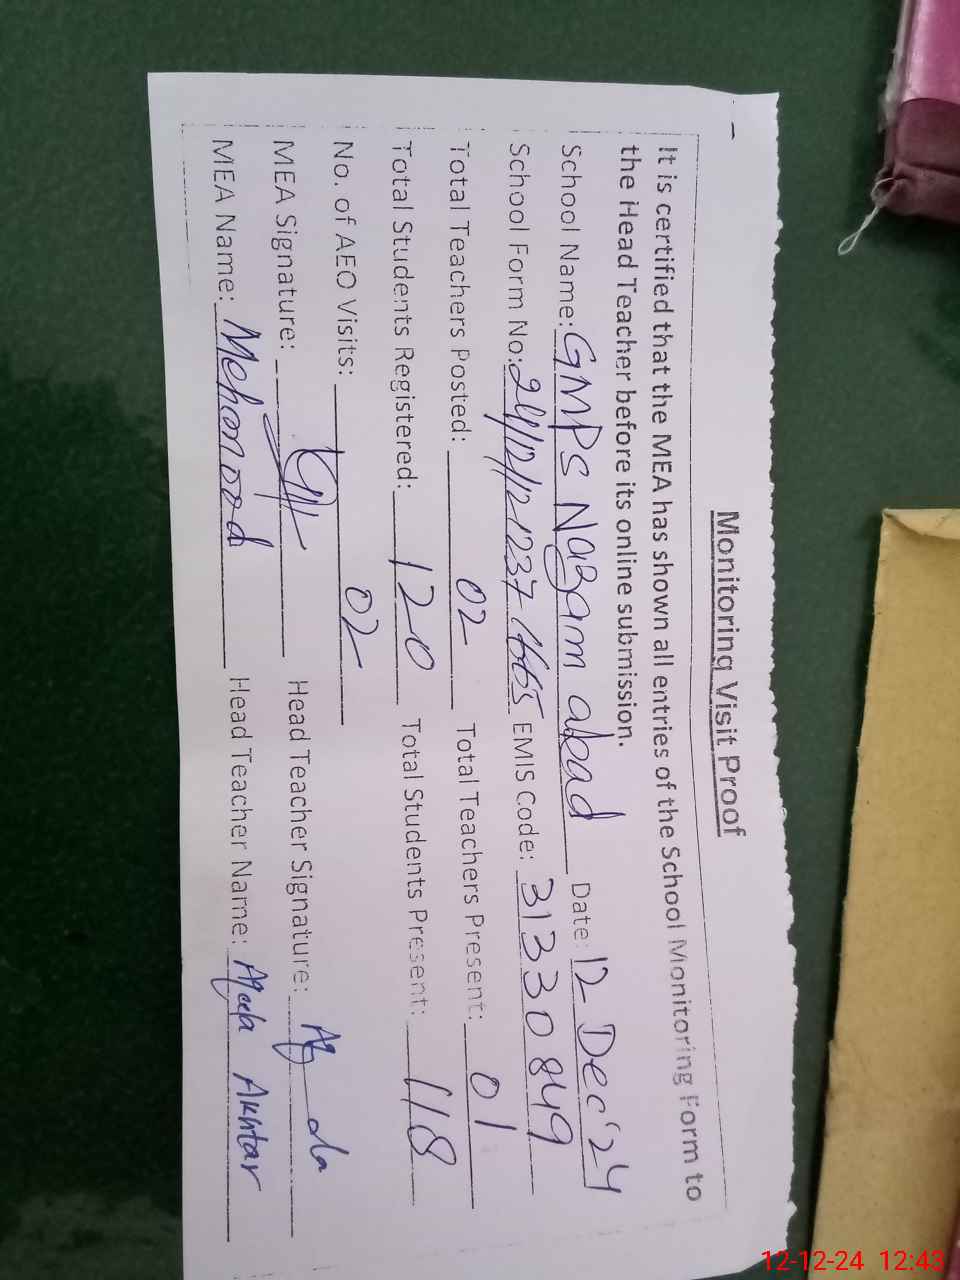 Monitoring Visit Proof
It is certified that the MEA has shown all entries of the School Monitoring Form to
the Head Teacher before its online submission.
School Name: GMPS Nazam abad Date: 12 Dec'24
School Form No: EMIS Code: 31330849
Total Teachers Posted: 02 Total Teachers Present: 01
Total Students Registered: 120 Total Students Present: 118
No. of AEO Visits: 02
MEA Signature: Head Teacher Signature:
MEA Name: Mehmood Head Teacher Name: Aqeela Akhtar
12-12-24 12:43